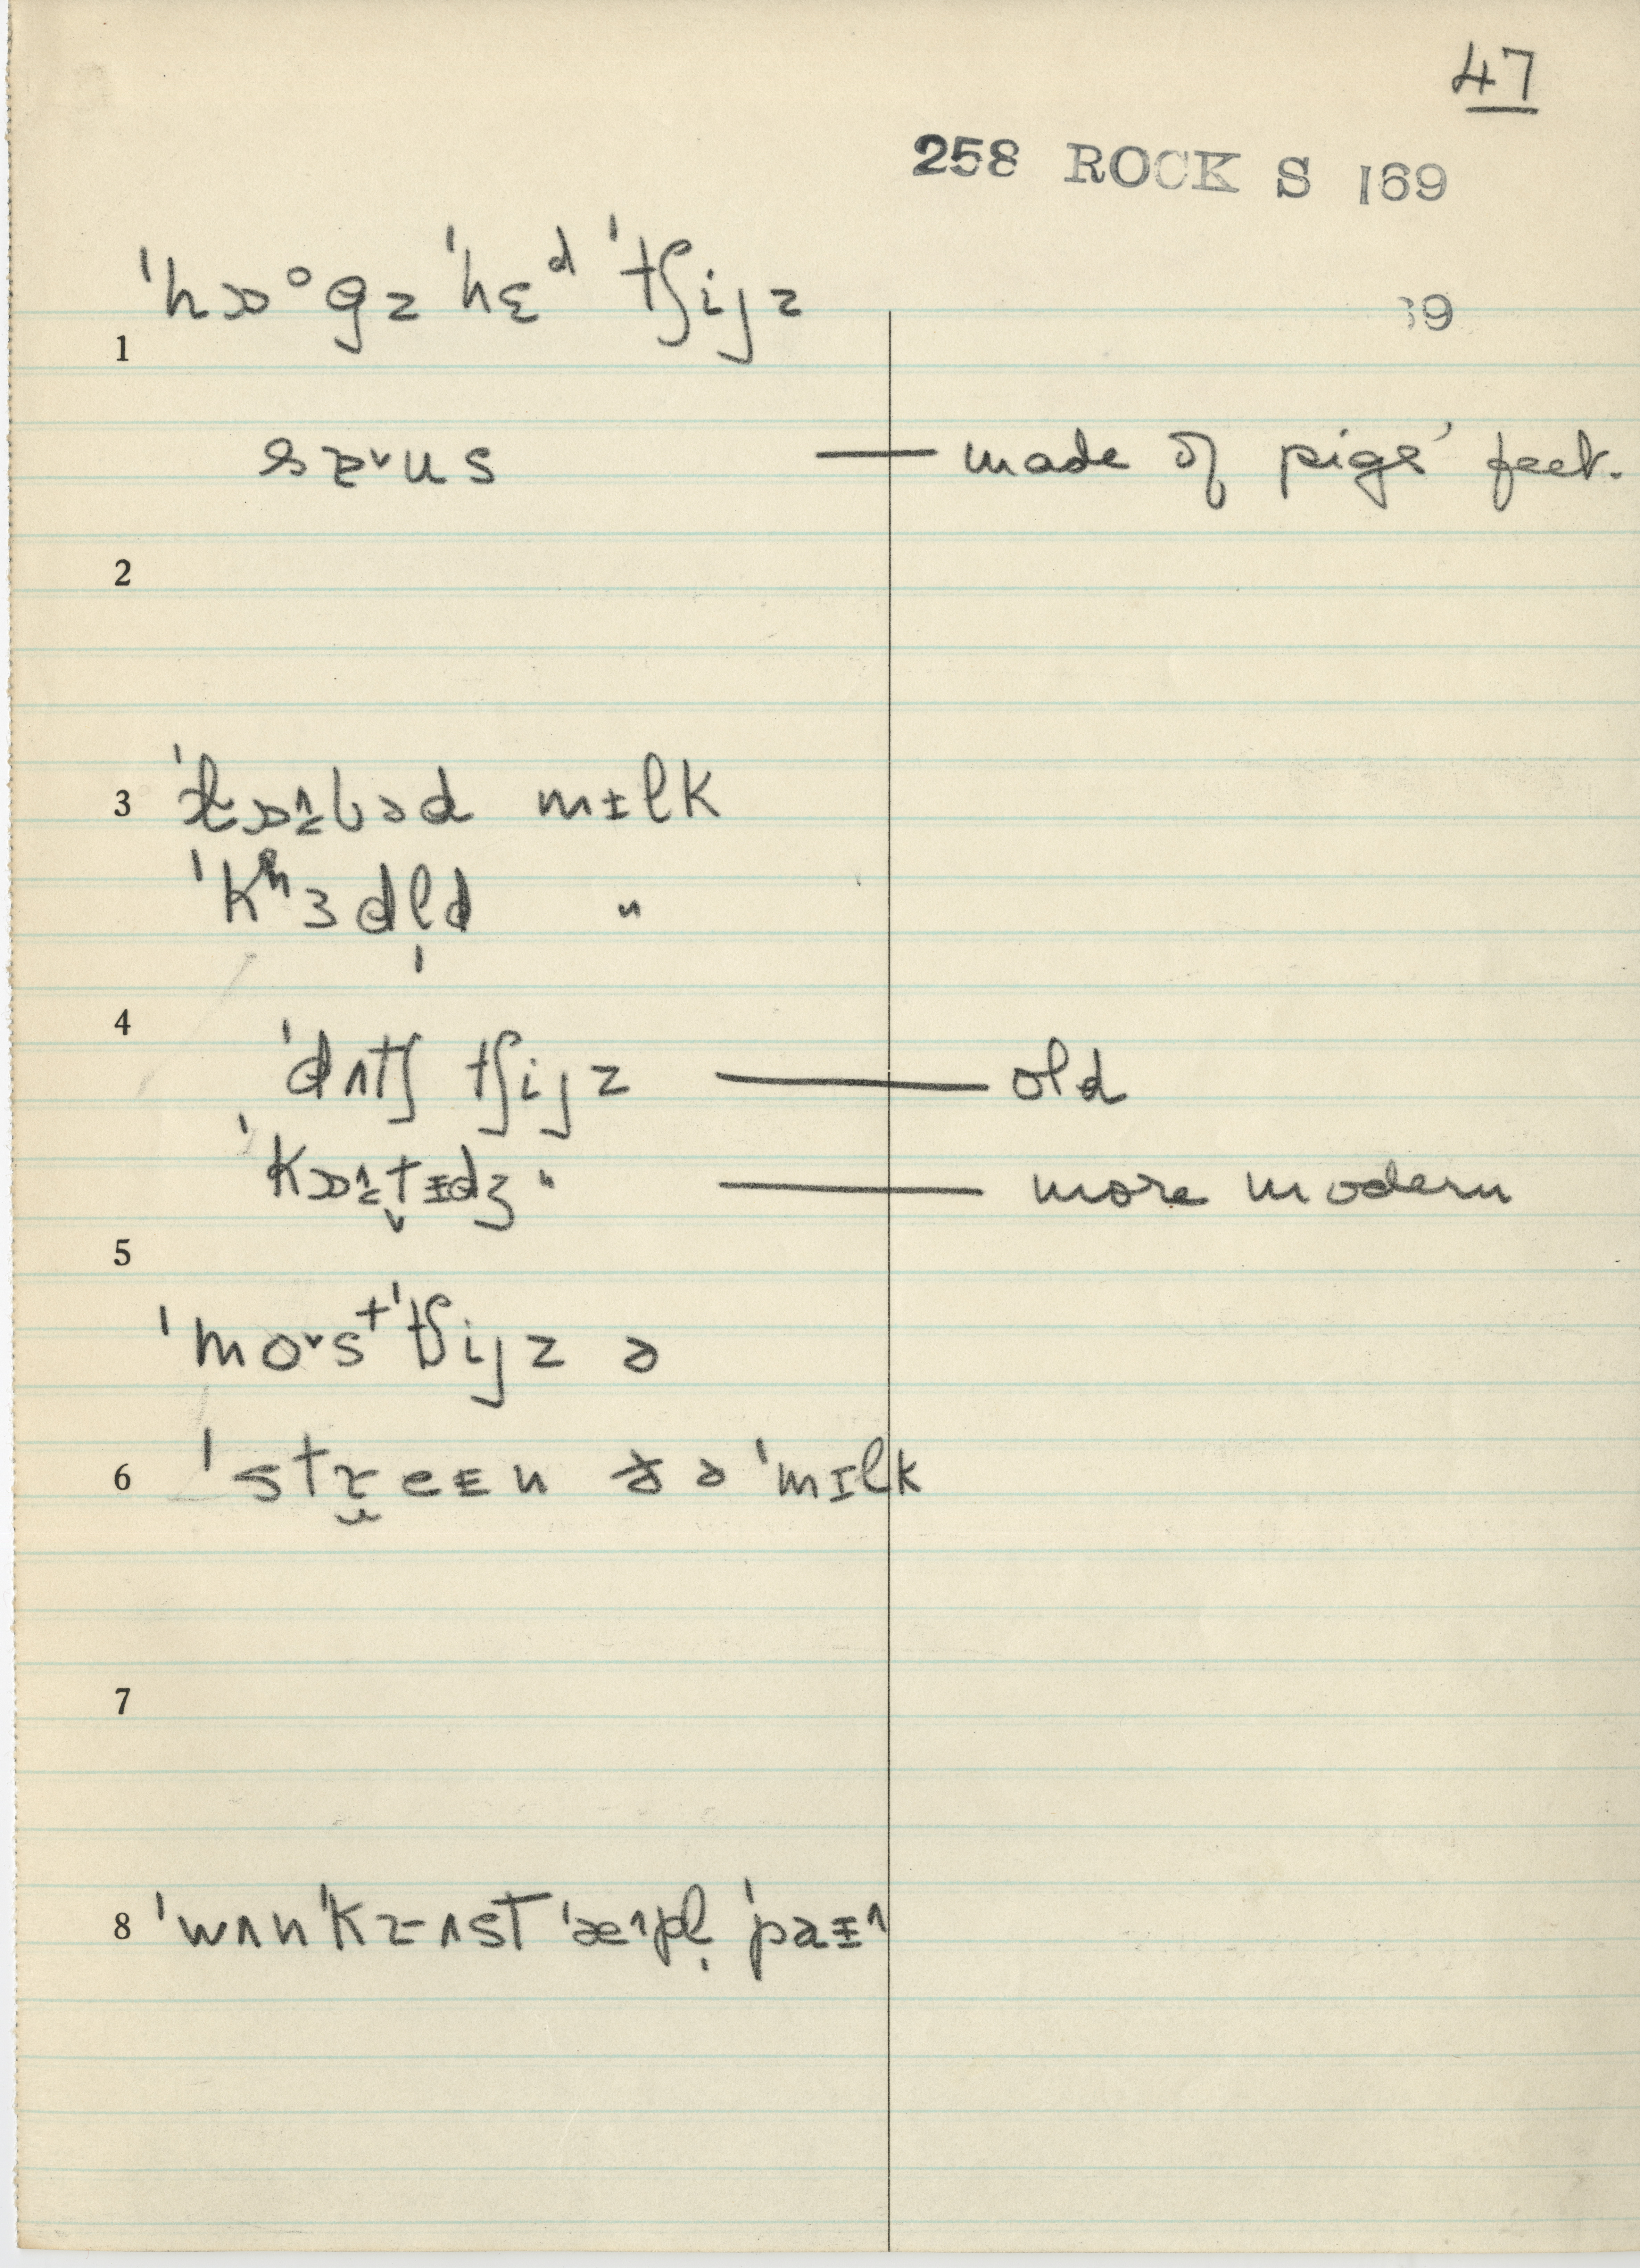 47
258 ROCK S 169
69
1 ˈhɒᵒgz ˈhɛᵈ ˈtʃijz
sɐ˅us — made of pigs' feet.
2
3 ˈklɒbəd mɪlk
ˈkʰɜdl̩d "
4
ˈdʌtʃ tʃijz — old
ˈkɒtɪdʒ " — more modern
5
ˈmo˅sᵗ ˈtʃijz ə
6 ˈstreɪn ðə ˈmɪlk
7
8 ˈwʌn ˈkrʌst ˈæpl̩ ˈpaɪ